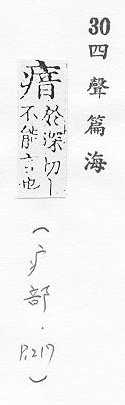 30四聲篇海
瘖於深切
不能言也
（疒部．
P.217）